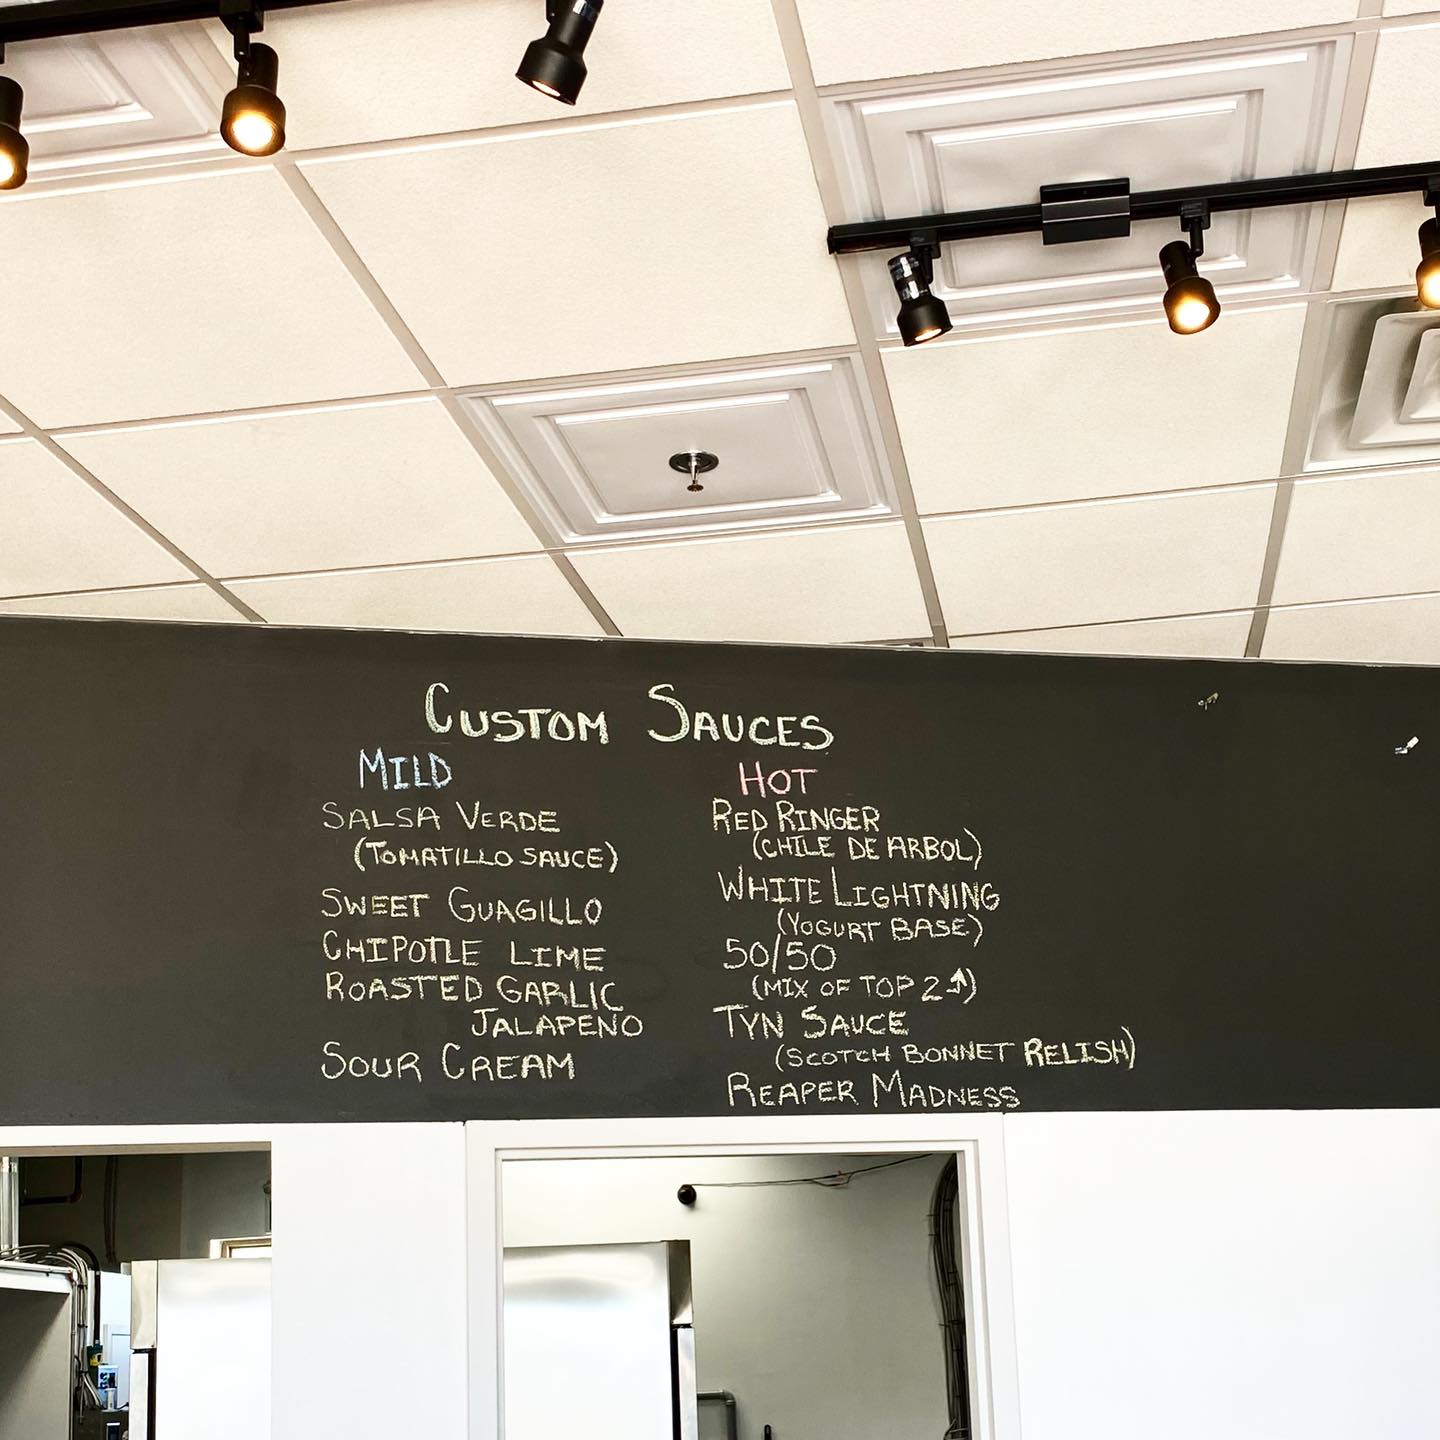 CUSTOM SAUCES
MILD
SALSA VERDE
(TOMATILLO SAUCE)
SWEET GUAGILLO
CHIPOTLE LIME
ROASTED GARLIC
JALAPENO
SOUR CREAM
HOT
RED RINGER
(CHILE DE ARBOL)
WHITE LIGHTNING
(YOGURT BASE)
50/50
(MIX OF TOP 2)
TYN SAUCE
(SCOTCH BONNET RELISH)
REAPER MADNESS